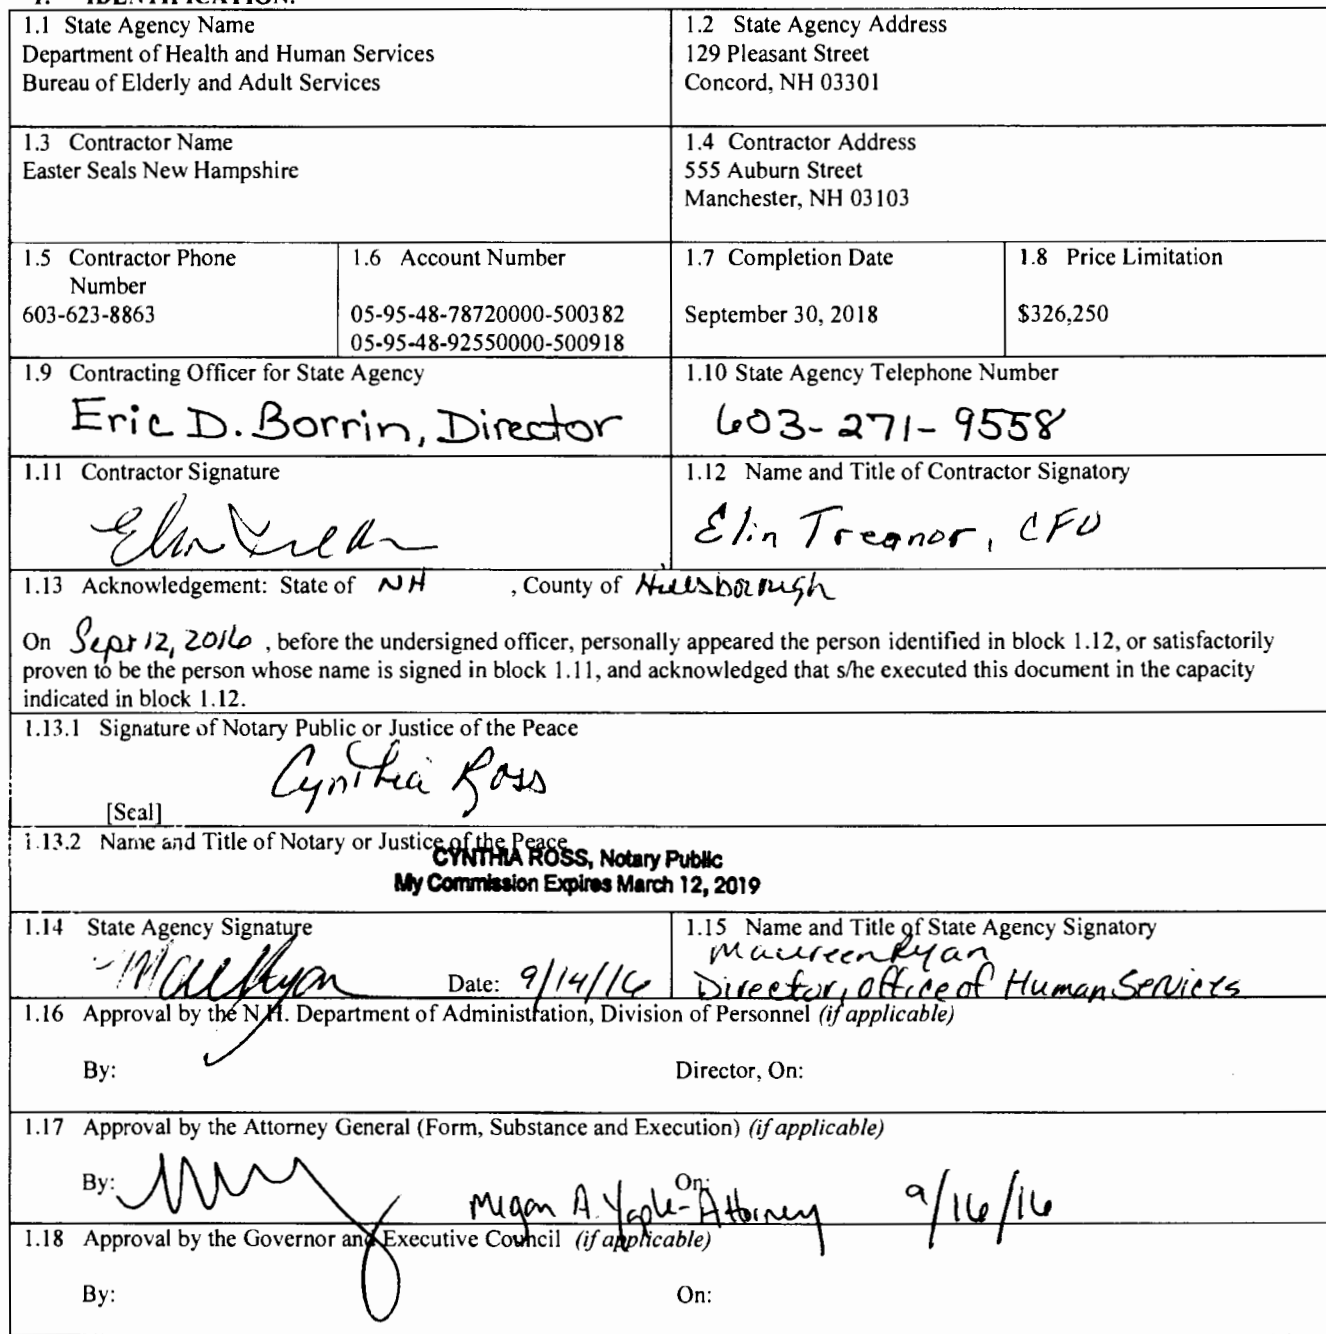 1. IDENTIFICATION.
1.1 State Agency Name
Department of Health and Human Services
Bureau of Elderly and Adult Services
1.2 State Agency Address
129 Pleasant Street
Concord, NH 03301
1.3 Contractor Name
Easter Seals New Hampshire
1.4 Contractor Address
555 Auburn Street
Manchester, NH 03103
1.5 Contractor Phone
Number
603-623-8863
1.6 Account Number
05-95-48-78720000-500382
05-95-48-92550000-500918
1.7 Completion Date
September 30, 2018
1.8 Price Limitation
$326,250
1.9 Contracting Officer for State Agency
Eric D. Borrin, Director
1.10 State Agency Telephone Number
603-271-9558
1.11 Contractor Signature
Elin Treanor
1.12 Name and Title of Contractor Signatory
Elin Treanor, CFO
1.13 Acknowledgement: State of NH , County of Hillsborough
On Sept 12, 2016 , before the undersigned officer, personally appeared the person identified in block 1.12, or satisfactorily
proven to be the person whose name is signed in block 1.11, and acknowledged that s/he executed this document in the capacity
indicated in block 1.12.
1.13.1 Signature of Notary Public or Justice of the Peace
Cynthia Ross
[Seal]
1.13.2 Name and Title of Notary or Justice of the Peace
CYNTHIA ROSS, Notary Public
My Commission Expires March 12, 2019
1.14 State Agency Signature
Date: 9/14/16
1.15 Name and Title of State Agency Signatory
Maureen Ryan
Director, Office of Human Services
1.16 Approval by the N.H. Department of Administration, Division of Personnel (if applicable)
By: Director, On:
1.17 Approval by the Attorney General (Form, Substance and Execution) (if applicable)
By: On:
Megan A. Yaple - Attorney 9/16/16
1.18 Approval by the Governor and Executive Council (if applicable)
By: On: